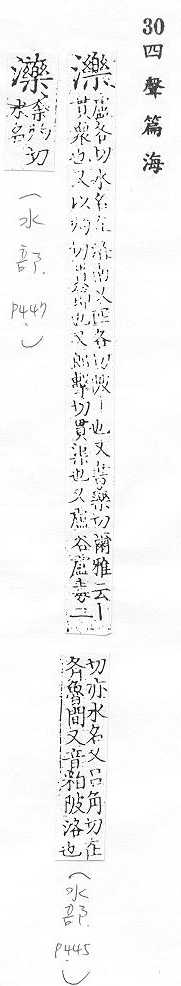 30四聲篇海
濼
盧各切水名在濟南又匹各切陂丨也又書藥切爾雅云丨
貫衆也又以灼切消鑠也又郎擊切貫渠也又盧谷盧毒二
切亦水名又吕角切在
齊魯間又音粕陂洛也
（水部P445）
灼切
水名
（水部P447）